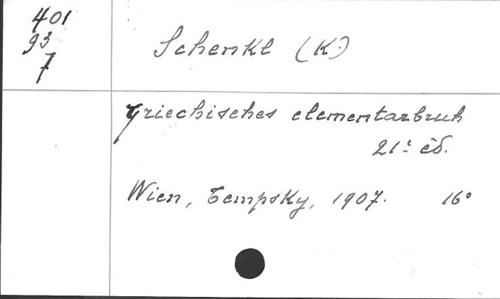 401
93
7
Schenkl (K.)
Griechisches elementarbuch
21e éd.
Wien, Tempsky, 1907. 16°